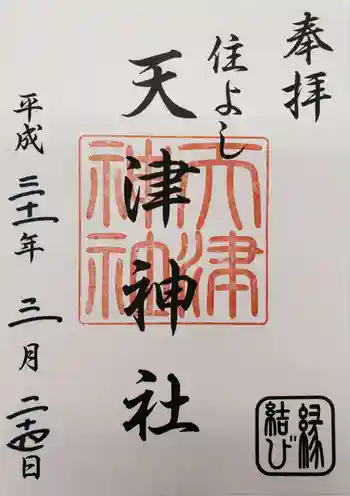 奉拝
住よし
天津神社
天津
神社
平成三十一年三月二十四日
縁
結び